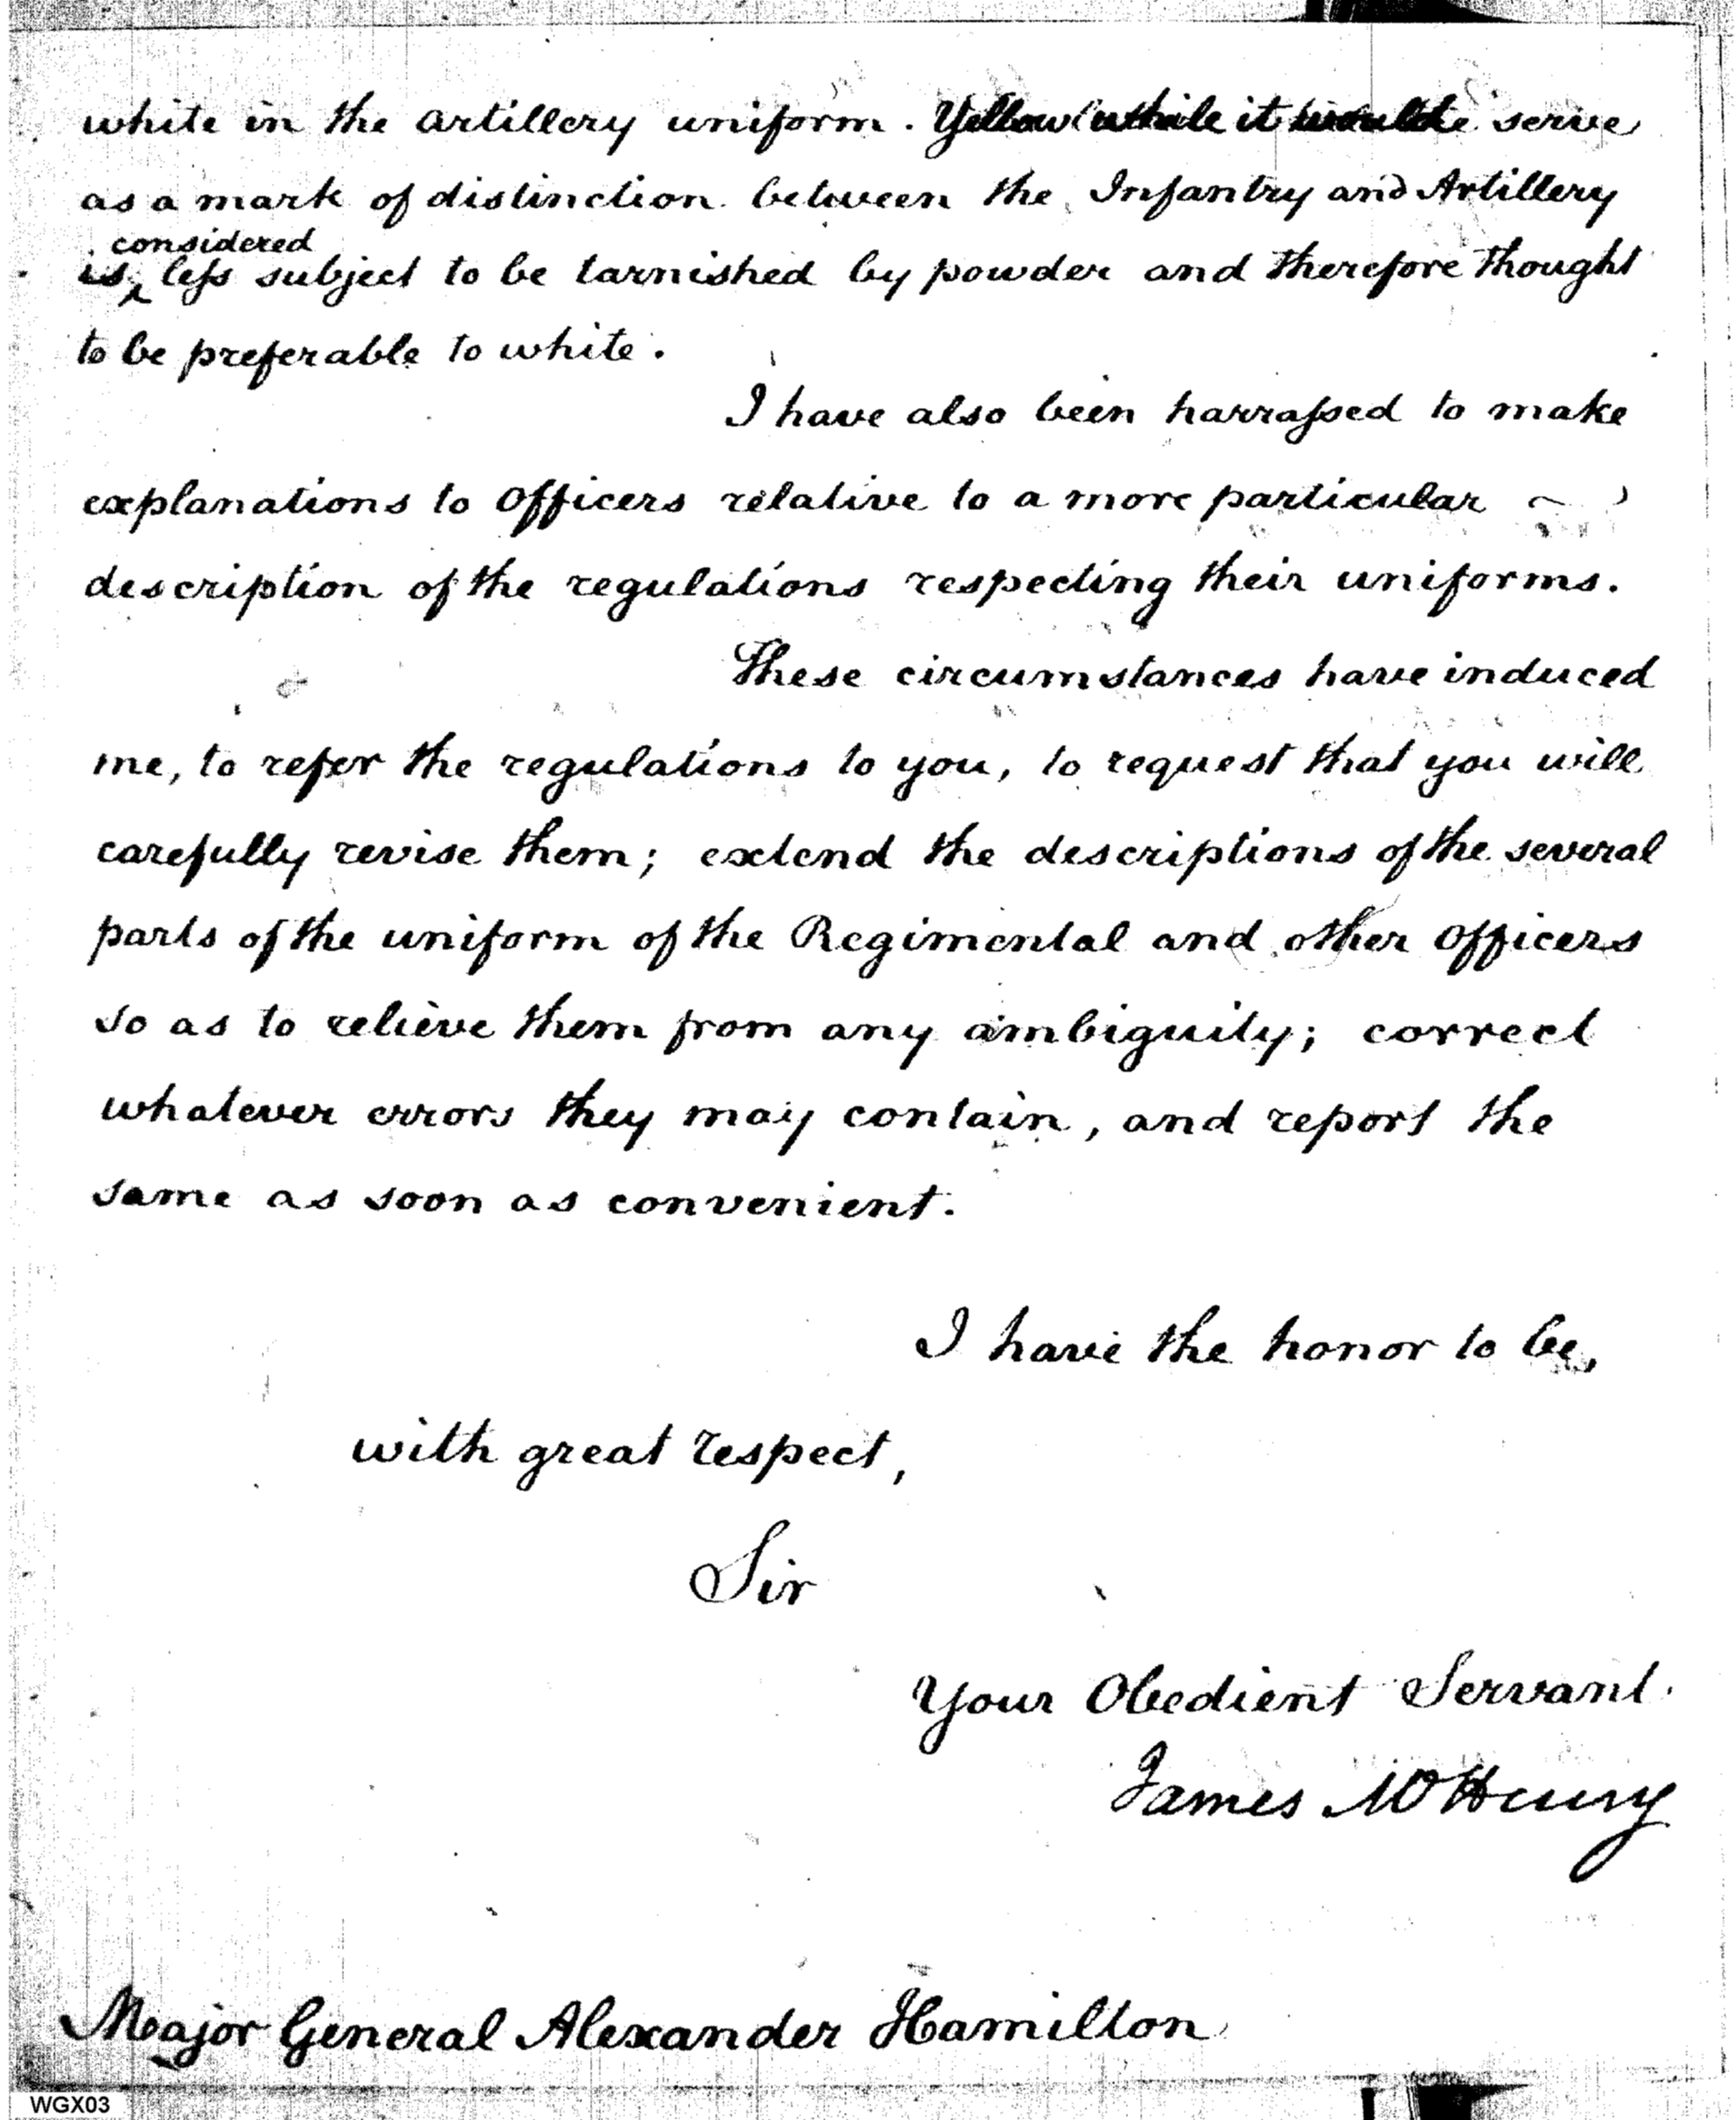 white in the artillery uniform. Yellow while it would serve
as a mark of distinction between the Infantry and Artillery
considered
is less subject to be tarnished by powder and therefore thought
to be preferable to white.
I have also been harrassed to make
explanations to Officers relative to a more particular
description of the regulations respecting their uniforms.
These circumstances have induced
me, to refer the regulations to you, to request that you will
carefully revise them; extend the descriptions of the several
parts of the uniform of the Regimental and other Officers
so as to relieve them from any ambiguity; correct
whatever errors they may contain, and report the
same as soon as convenient.
I have the honor to be,
with great respect,
Sir
Your Obedient Servant.
James McHenry
Major General Alexander Hamilton
WGX03